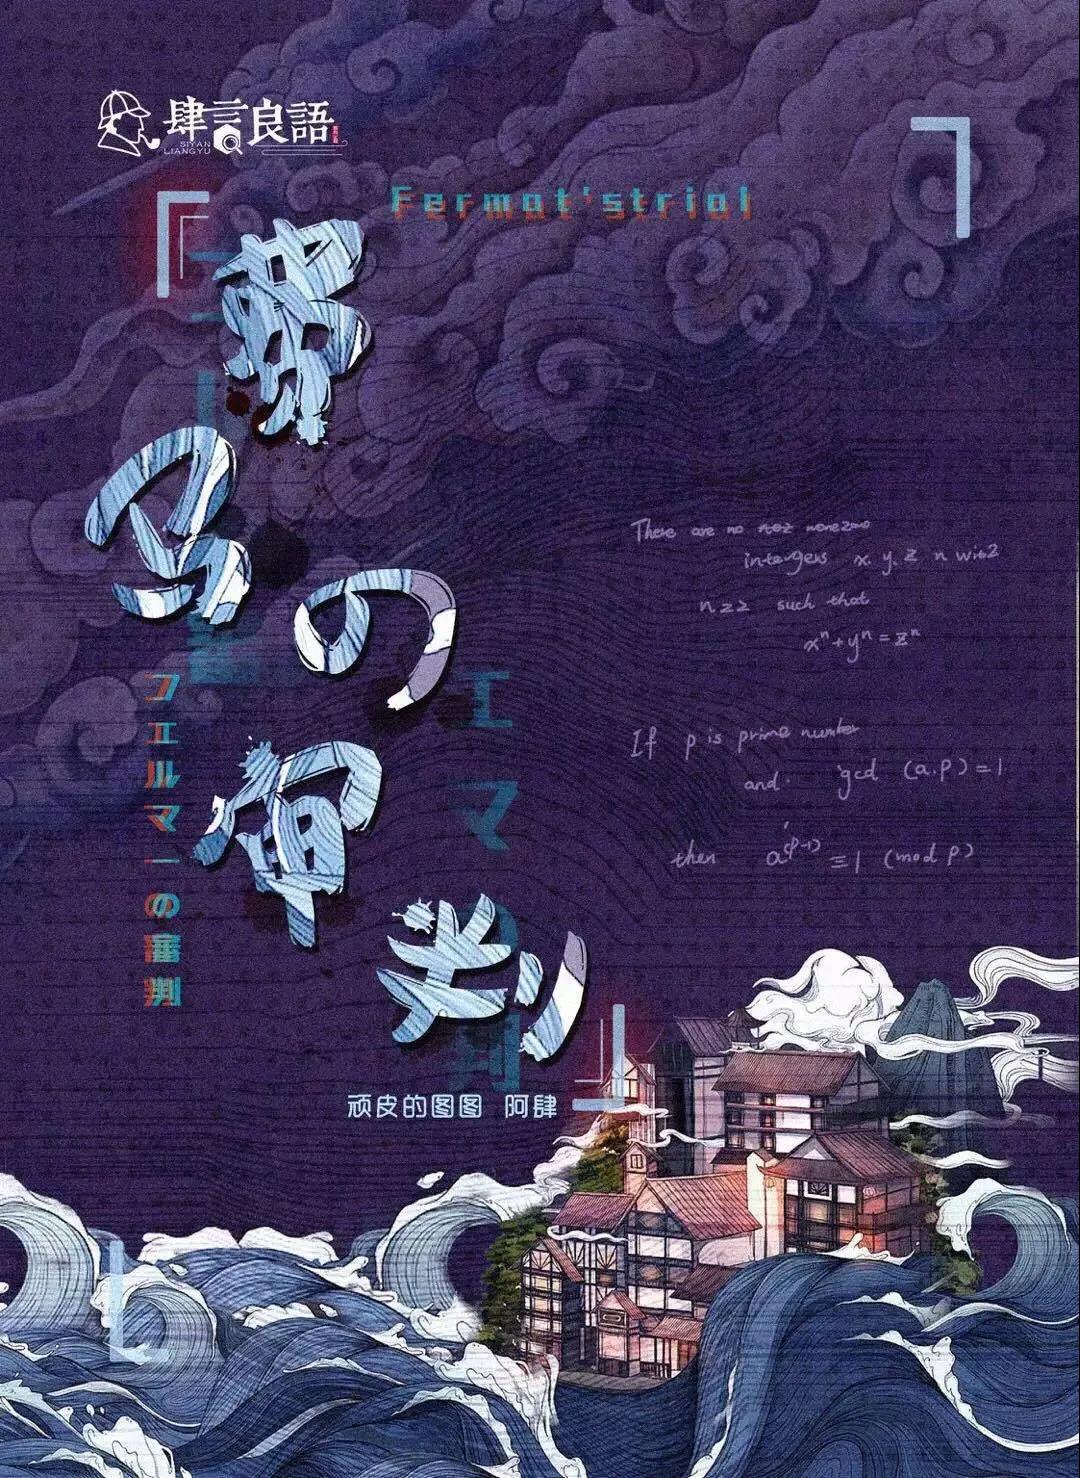 肆言良語
SIYAN
LIANGYU
Fermat'strial
费马の审判
フェルマーの審判
There are no nonezero
intergers x, y, z n with
n≥2 such that
xⁿ+yⁿ=zⁿ
If p is prime number
and. gcd (a.p)=1
then a⁽ᵖ⁻¹⁾≡1 (mod p)
顽皮的图图 阿肆